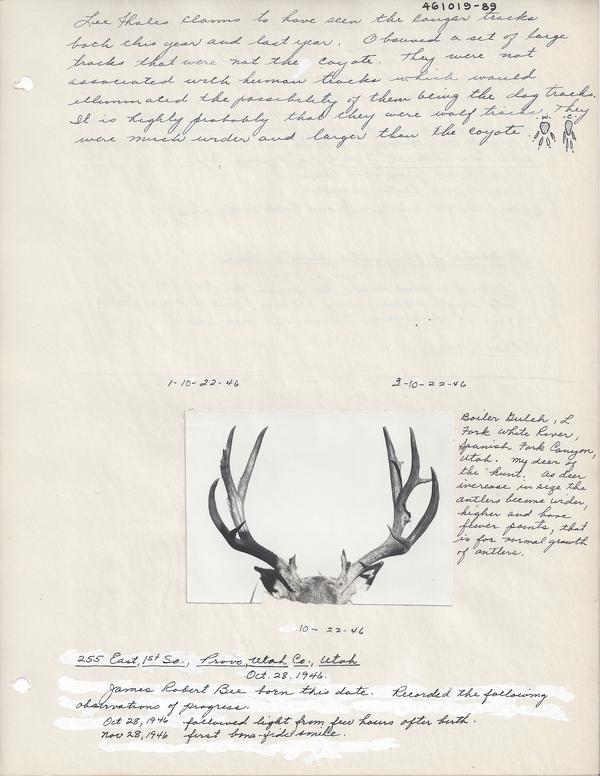 461019-89
Lee Thales claims to have seen the cougar tracks
both this year and last year. Obsurved a set of large
tracks that were not the coyote. They were not
associated with human tracks which would
illuminated the possibility of them being the dog tracks.
It is highly probably that they were wolf tracks. They
were much wider and larger than the coyote.
-W- -C-
1-10-22-46
2-10-22-46
Boiler Gulch, L
Fork White River,
Spanish Fork Canyon,
Utah. My deer of
the hunt. As deer
increase in size the
antlers become wider,
higher and have
fewer points, that
is for normal growth
of antlers.
10-22-46
255 East, 1st So., Provo, Utah Co., Utah
Oct. 28, 1946.
James Robert Bee born this date. Recorded the following
observations of progress.
Oct 28, 1946 followed light from few hours after birth.
Nov 28, 1946 first bona-fide smile.